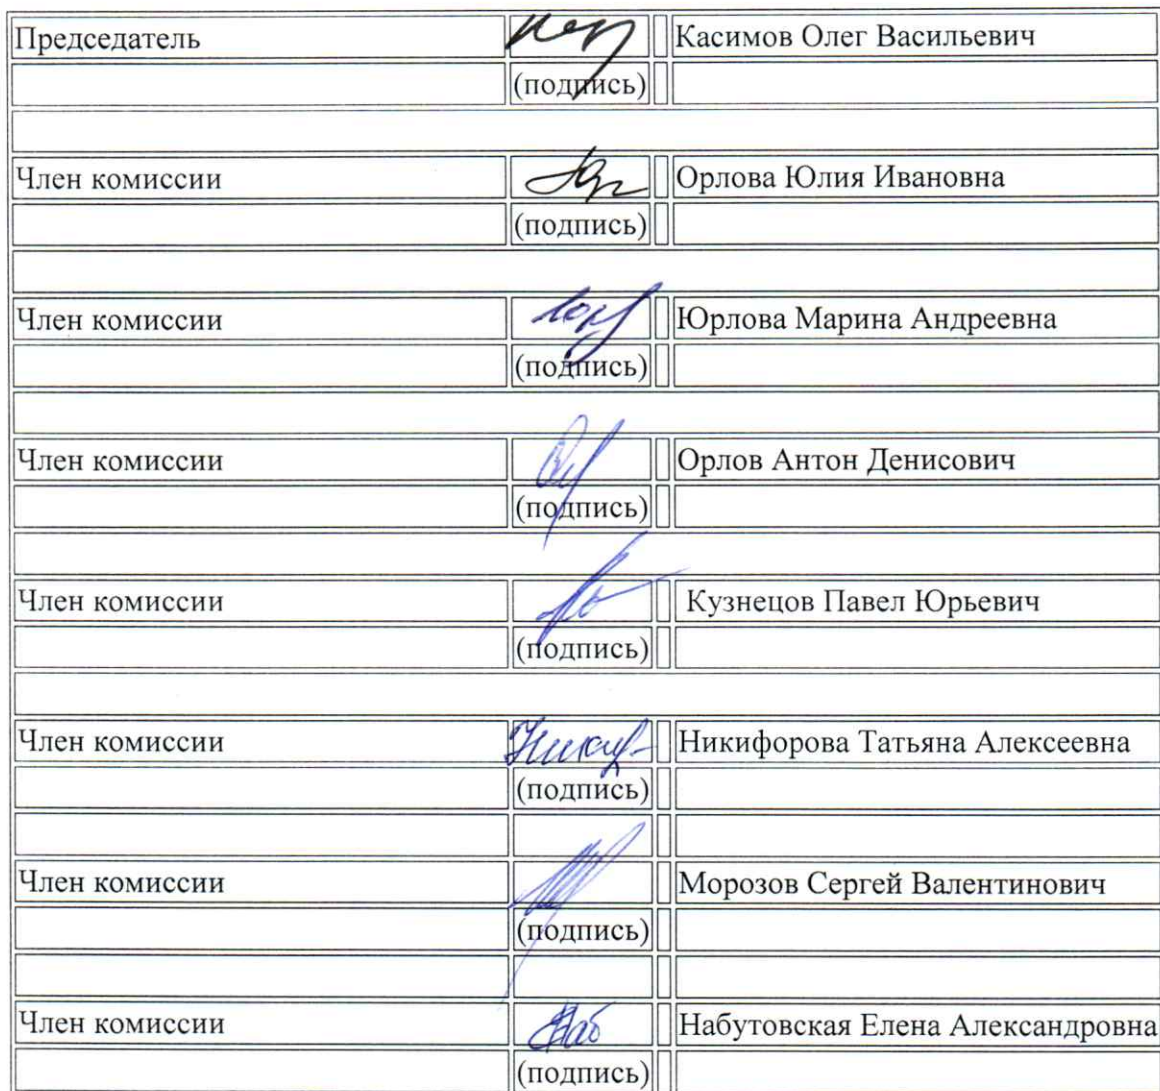 Председатель Касимов Олег Васильевич
(подпись)
Член комиссии Орлова Юлия Ивановна
(подпись)
Член комиссии Юрлова Марина Андреевна
(подпись)
Член комиссии Орлов Антон Денисович
(подпись)
Член комиссии Кузнецов Павел Юрьевич
(подпись)
Член комиссии Никифорова Татьяна Алексеевна
(подпись)
Член комиссии Морозов Сергей Валентинович
(подпись)
Член комиссии Набутовская Елена Александровна
(подпись)